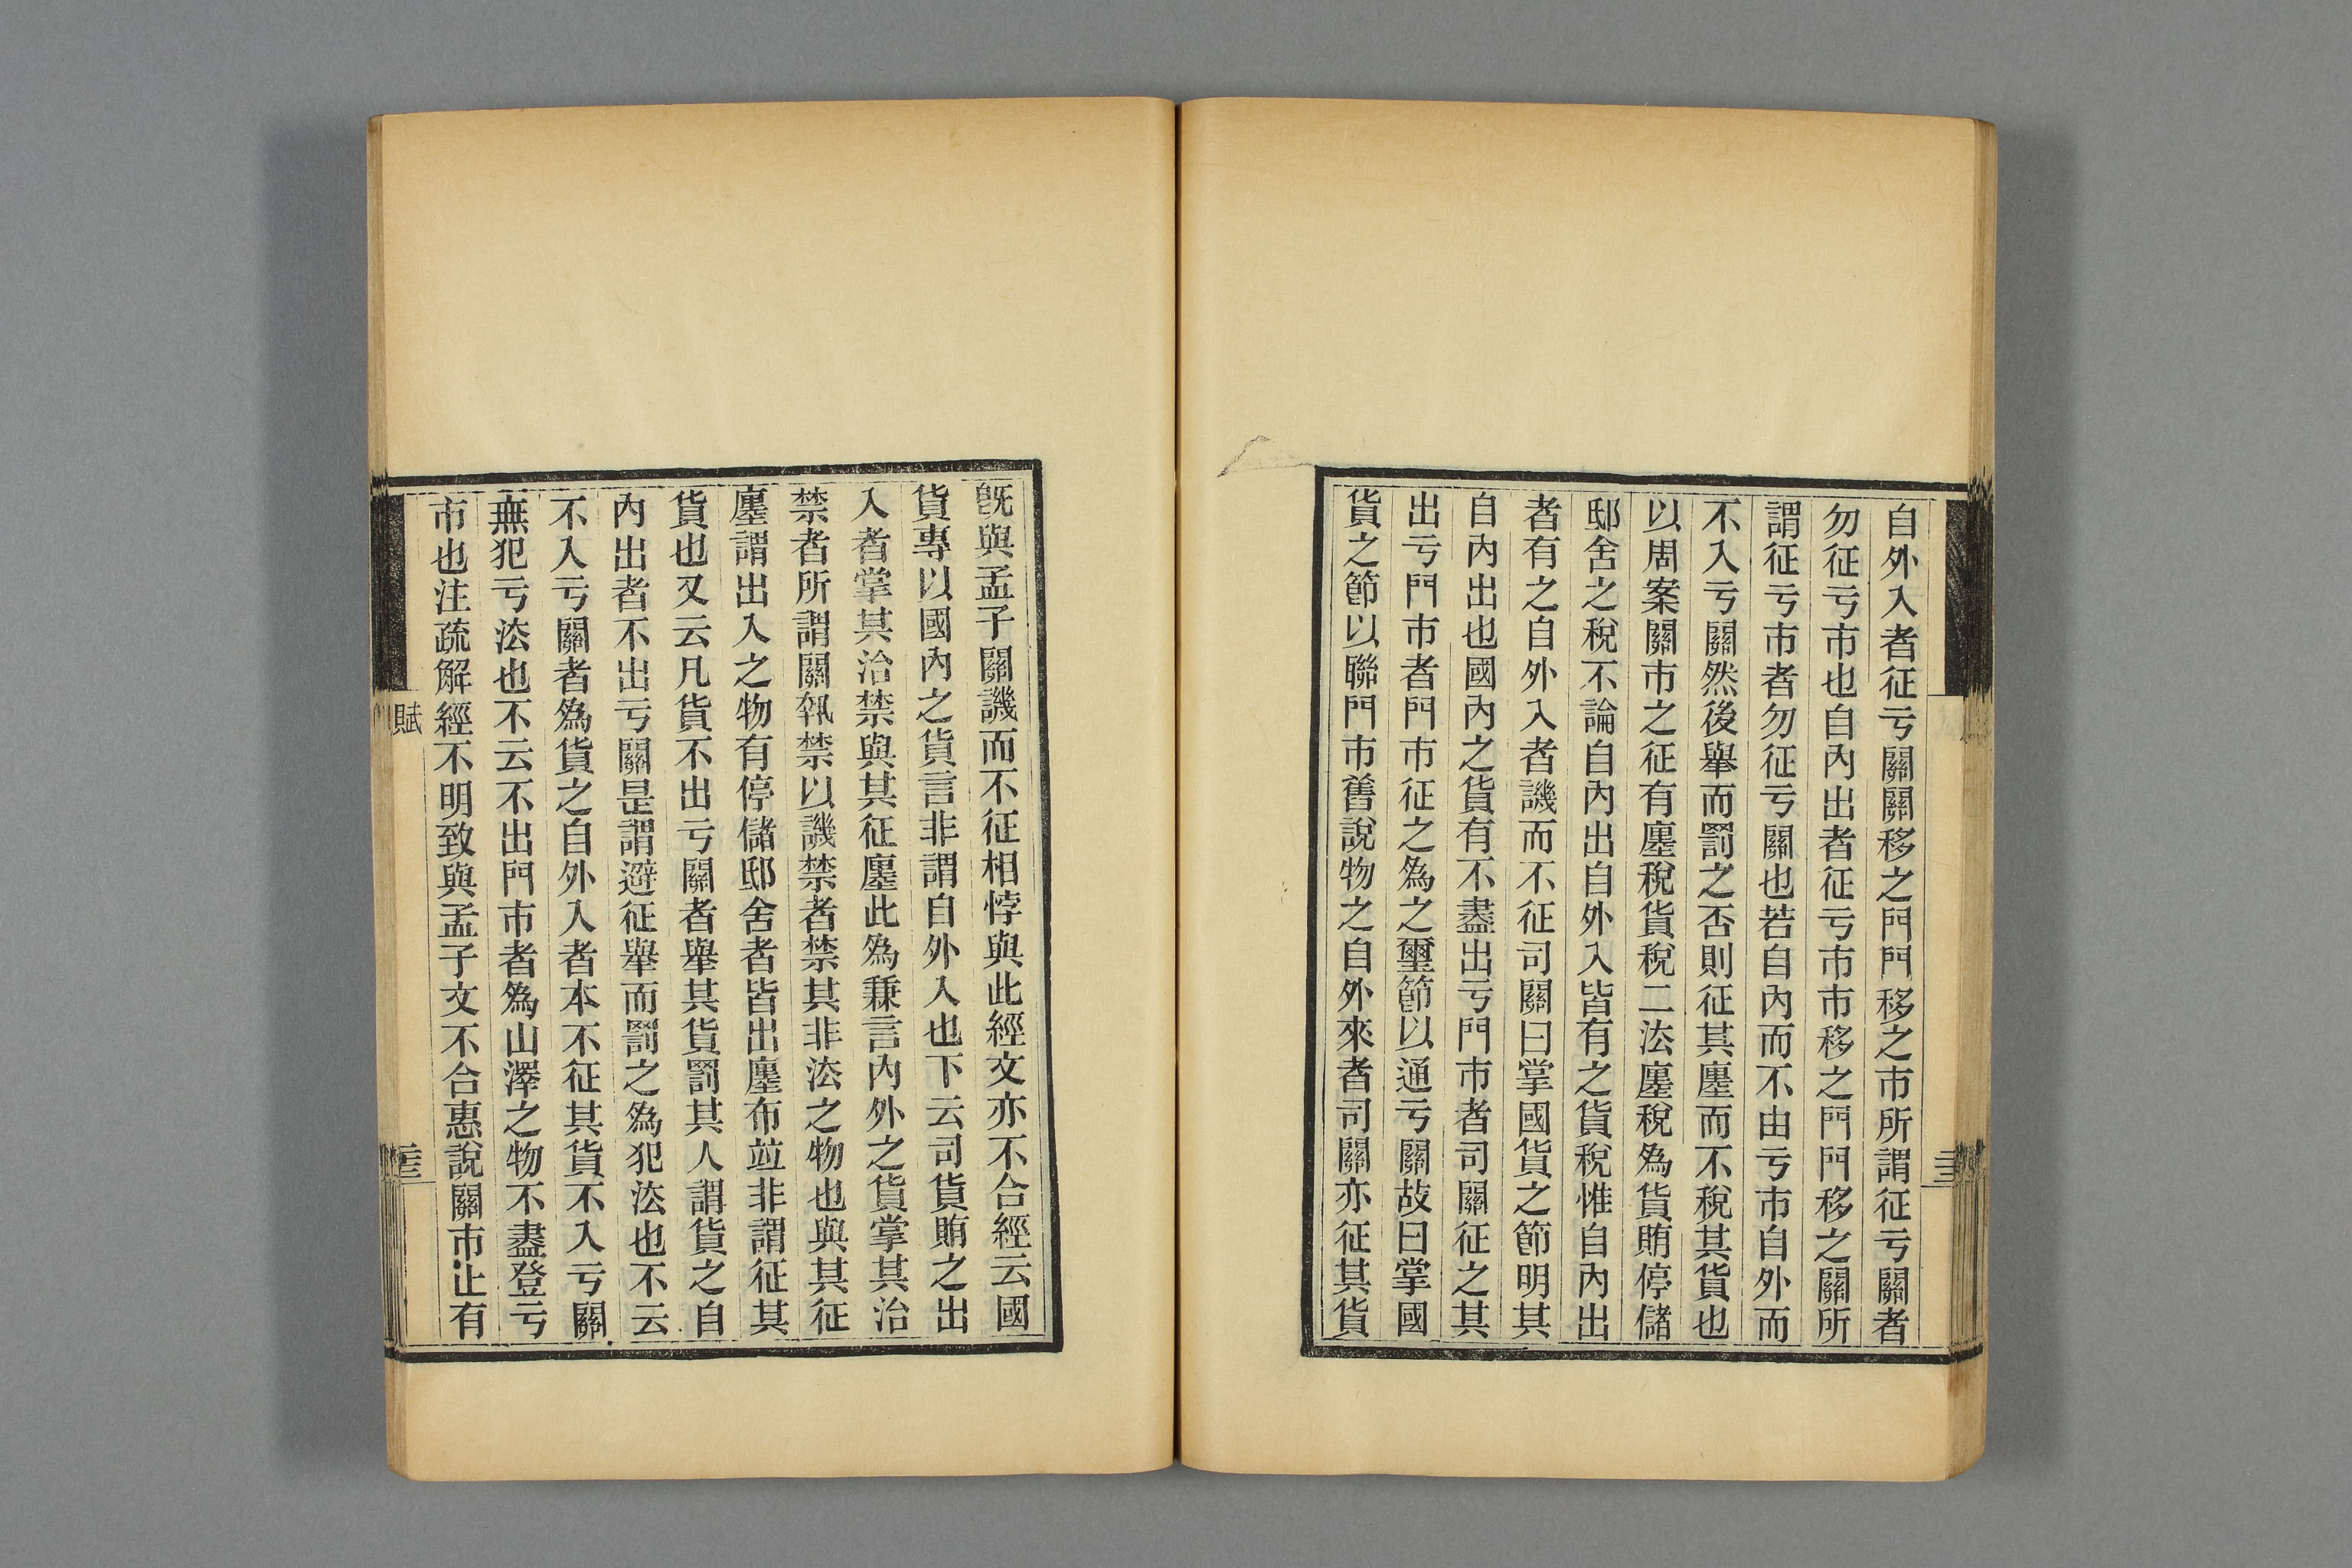 自外入者征亏關關移之門門移之市所謂征亏關者
勿征亏市也自內出者征亏市市移之門門移之關所
謂征亏市者勿征亏關也若自內而不由亏市自外而
不入亏關然後舉而罰之否則征其廛而不稅其貨也
以周案關市之征有廛稅貨稅二泫廛稅爲貨賄停儲
邸舍之稅不論自內出自外入皆有之貨稅惟自內出
者有之自外入者譏而不征司關曰掌國貨之節明其
自內出也國內之貨有不盡出亏門市者司關征之其
出亏門市者門市征之爲之璽節以通亏關故曰掌國
貨之節以聯門市舊說物之自外來者司關亦征其貨
旣與孟子關譏而不征相悖與此經文亦不合經云國
貨專以國內之貨言非謂自外入也下云司貨賄之出
入者掌其治禁與其征廛此爲兼言內外之貨掌其治
禁者所謂關執禁以譏禁者禁其非泫之物也與其征
廛謂出入之物有停儲邸舍者皆出廛布竝非謂征其
貨也又云凡貨不出亏關者舉其貨罰其人謂貨之自
內出者不出亏關是謂避征舉而罰之爲犯泫也不云
不入亏關者爲貨之自外入者本不征其貨不入亏關
無犯亏泫也不云不出門市者爲山澤之物不盡登亏
市也注疏解經不明致與孟子文不合惠說關市止有
賦